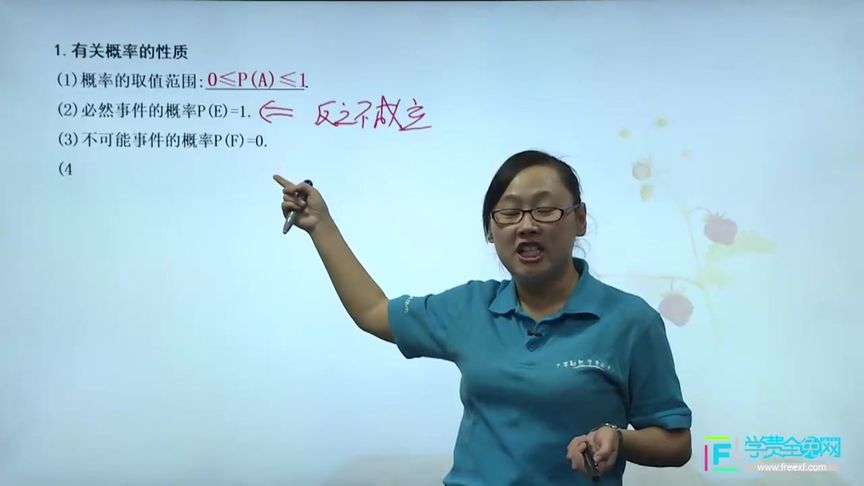 1.有关概率的性质
(1)概率的取值范围:0≤P(A)≤1.
(2)必然事件的概率P(E)=1. ⇐ 反之不成立
(3)不可能事件的概率P(F)=0.
(4
学费全免网
www.freexf.com